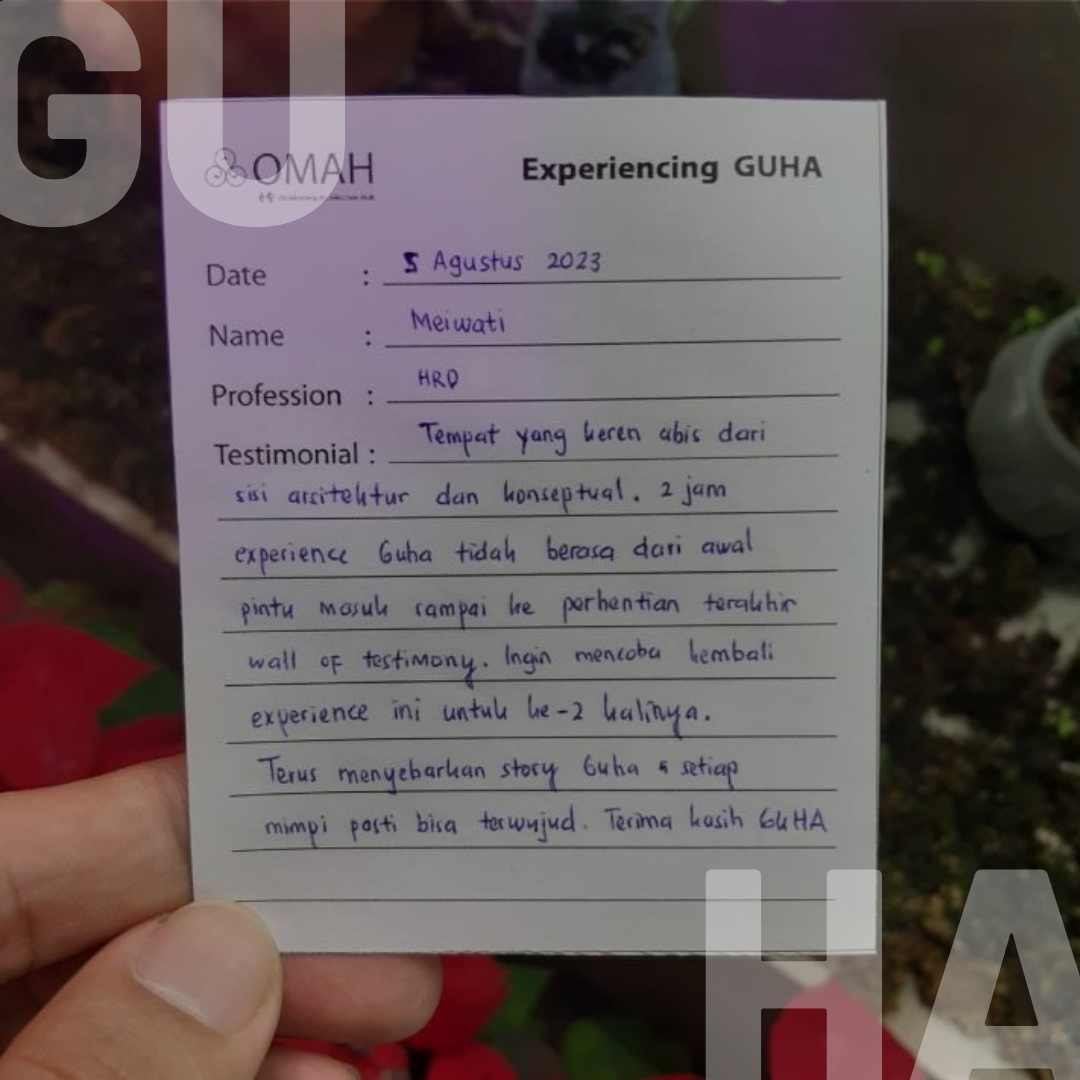 GU
OMAH
Experiencing GUHA
Date : 5 Agustus 2023
Name : Meiwati
Profession : HRD
Testimonial : Tempat yang keren abis dari
sisi arsitektur dan konseptual. 2 jam
experience Guha tidak berasa dari awal
pintu masuk sampai ke perhentian terakhir
wall of testimony. Ingin mencoba kembali
experience ini untuk ke-2 kalinya.
Terus menyebarkan story Guha & setiap
mimpi pasti bisa terwujud. Terima kasih GUHA
HA